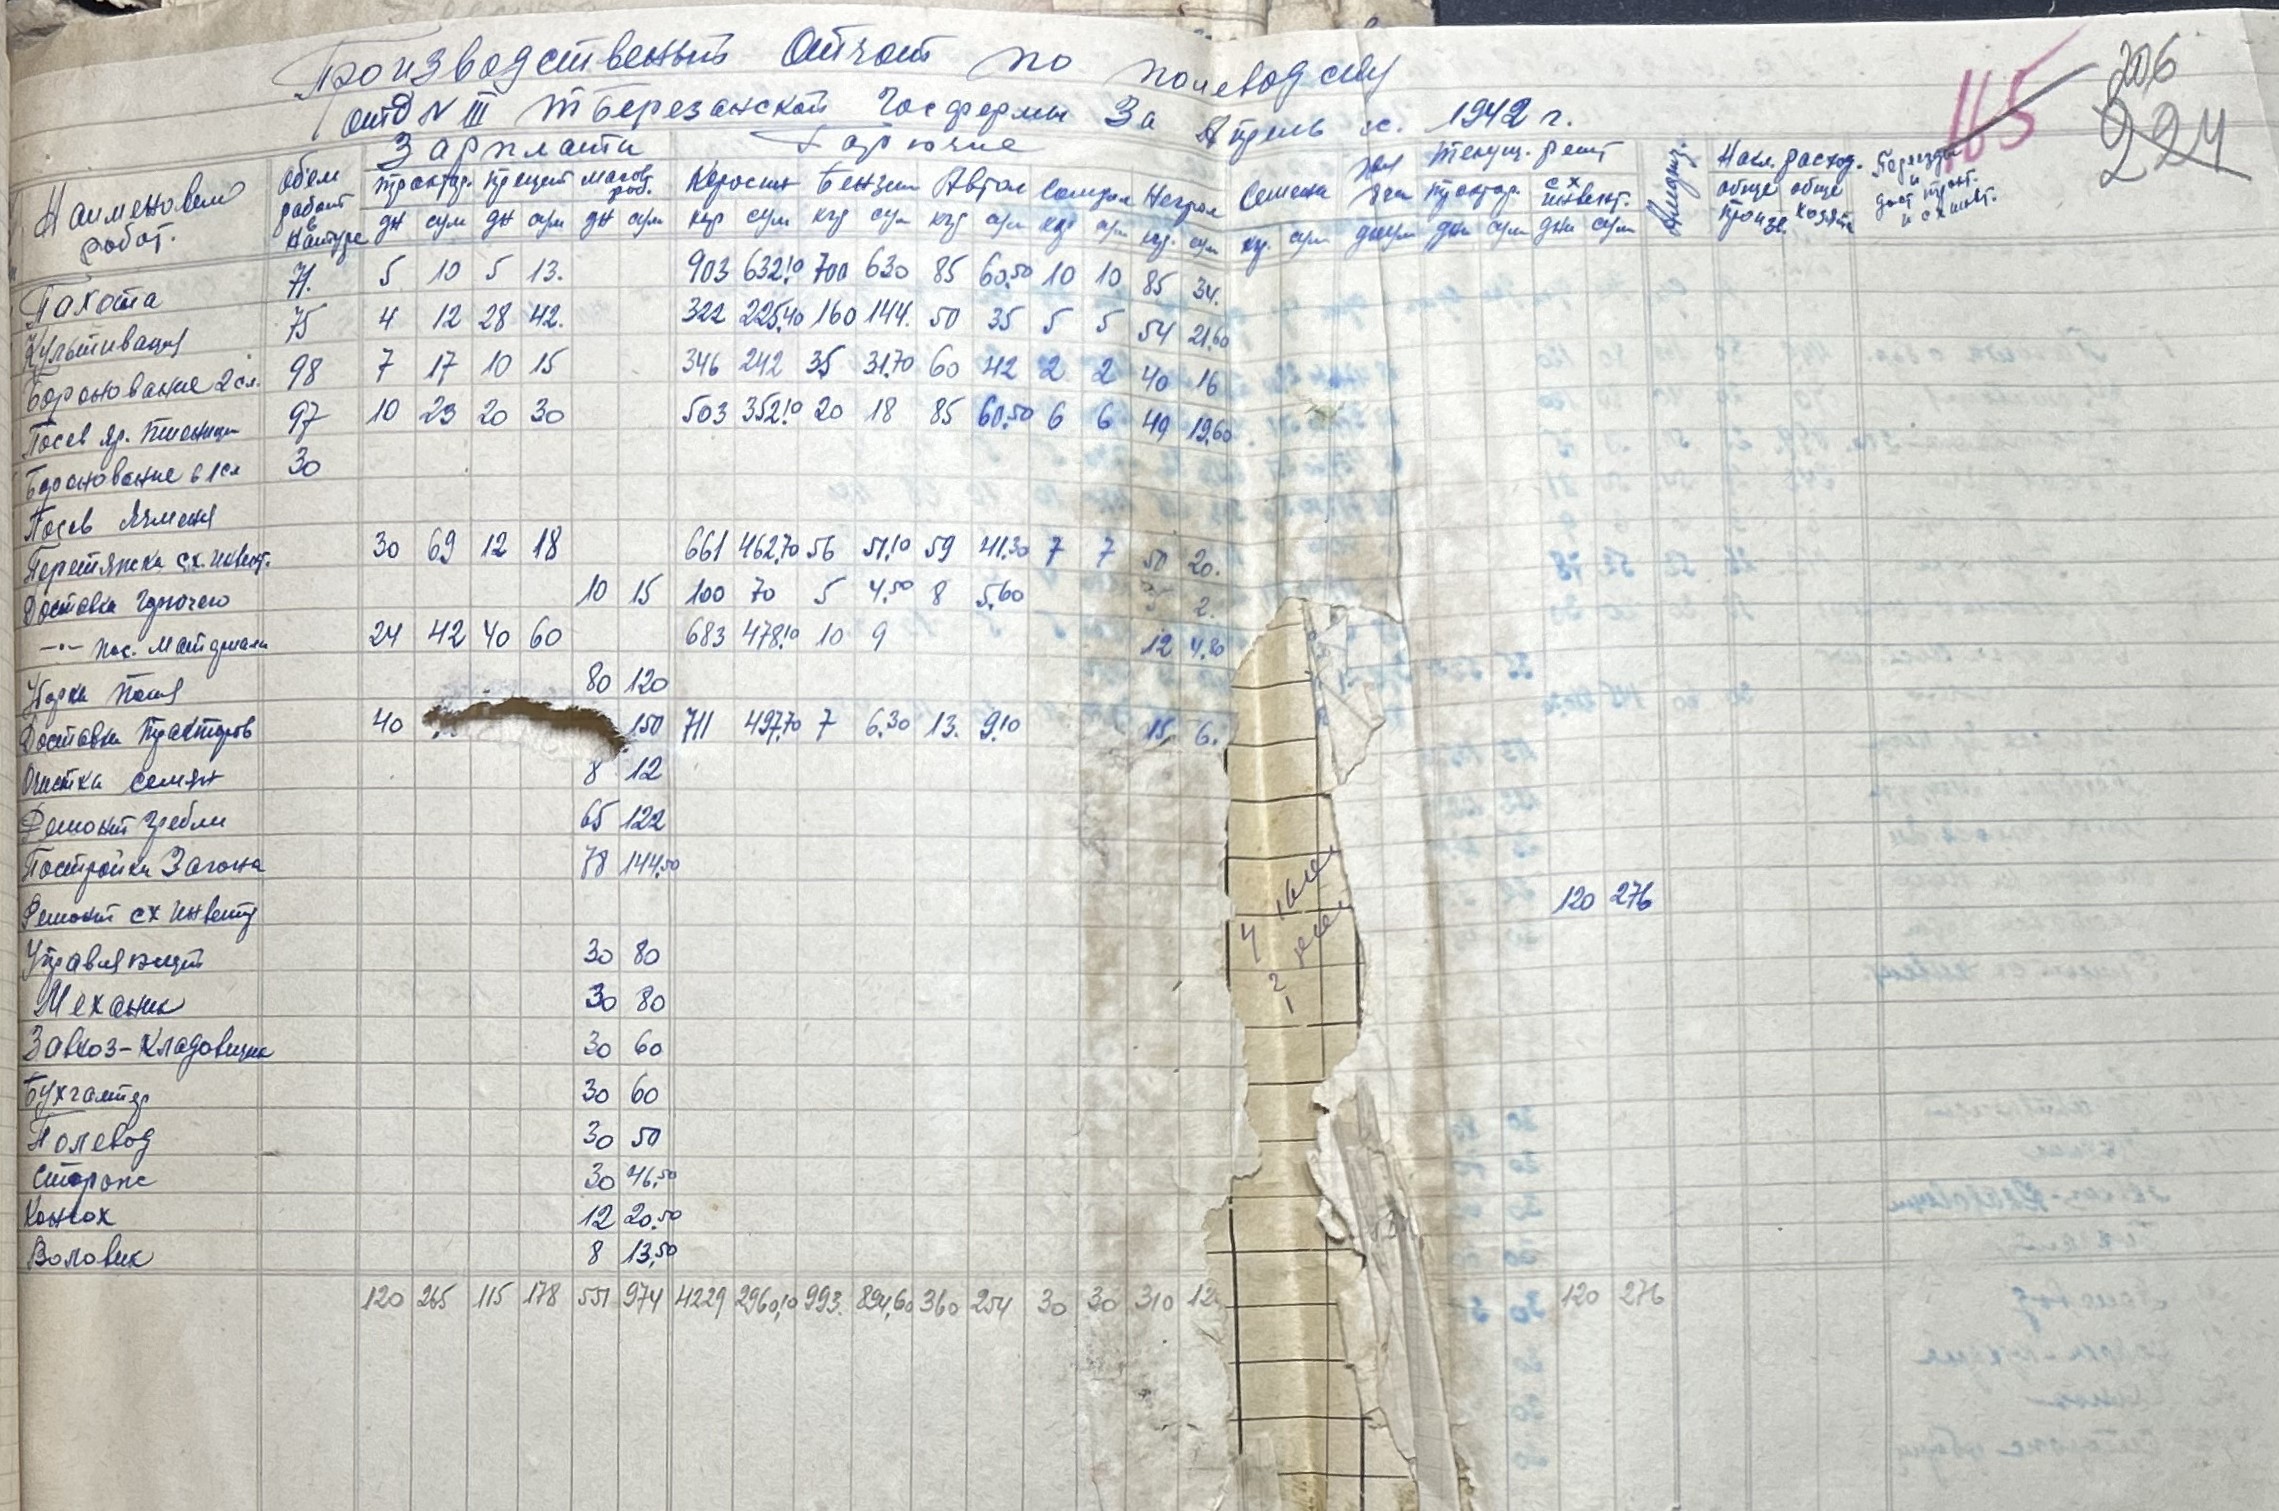 Производственый отчот по полеводству
206
165
224
отд N III Тберезанской Госфермы За Апрель м. 1942 г.
Зарплата Горючие
Наименовение работ.
обем работ в Натуре
трактор. прецеп масов. раб. Керосин Бензин Автол Солидол Негрол Семена текущ. ремт Амортиз. Накл. расход.
трактор. сх инвент. обще произв. обще хозяйст.
дн сум дн сум дн сум кгр сум кгр сум кгр сум кгр сум кгр. сум кг. сум дн сум дн сум дн сум
Пахота 71. 5 10 5 13. 903 632.10 700 630 85 60.50 10 10 85 34.
Культивация 75 4 12 28 42. 322 225.40 160 144. 50 35 5 5 54 21,60
Боронование 2 сл. 98 7 17 10 15 346 242 35 31.70 60 42 2 2 40 16
Посев яр. Пшеницы 97 10 23 20 30 503 352.10 20 18 85 60.50 6 6 49 19,60
Боронование в 1 сл 30
Посев Ячменя
Перетяжка с.х. инвент. 30 69 12 18 661 462.70 56 51.10 59 41.30 7 7 50 20.
Доставка горючего 10 15 100 70 5 4.50 8 5.60 2.
—•— пос. Материала 24 42 40 60 683 478.10 10 9 12 4.80
Уборка Поля 80 120
Доставка Тракторов 40 150 711 497.70 7 6.30 13. 9.10 15. 6.
Очистка семян 8 12
Ремонт Гребли 65 122
Постройка Загона 78 144.50
Ремонт сх инвент 120 276
Управляющий 30 80
Механик 30 80
Завхоз-Кладовщик 30 60
Бухгалтер 30 60
Полевод 30 50
Сторож 30 46,50
Конюх 12 20.50
Воловик 8 13,50
120 265 115 178 551 974 4229 2960,10 993. 894,60 360 254 30 30 310 12 120 276